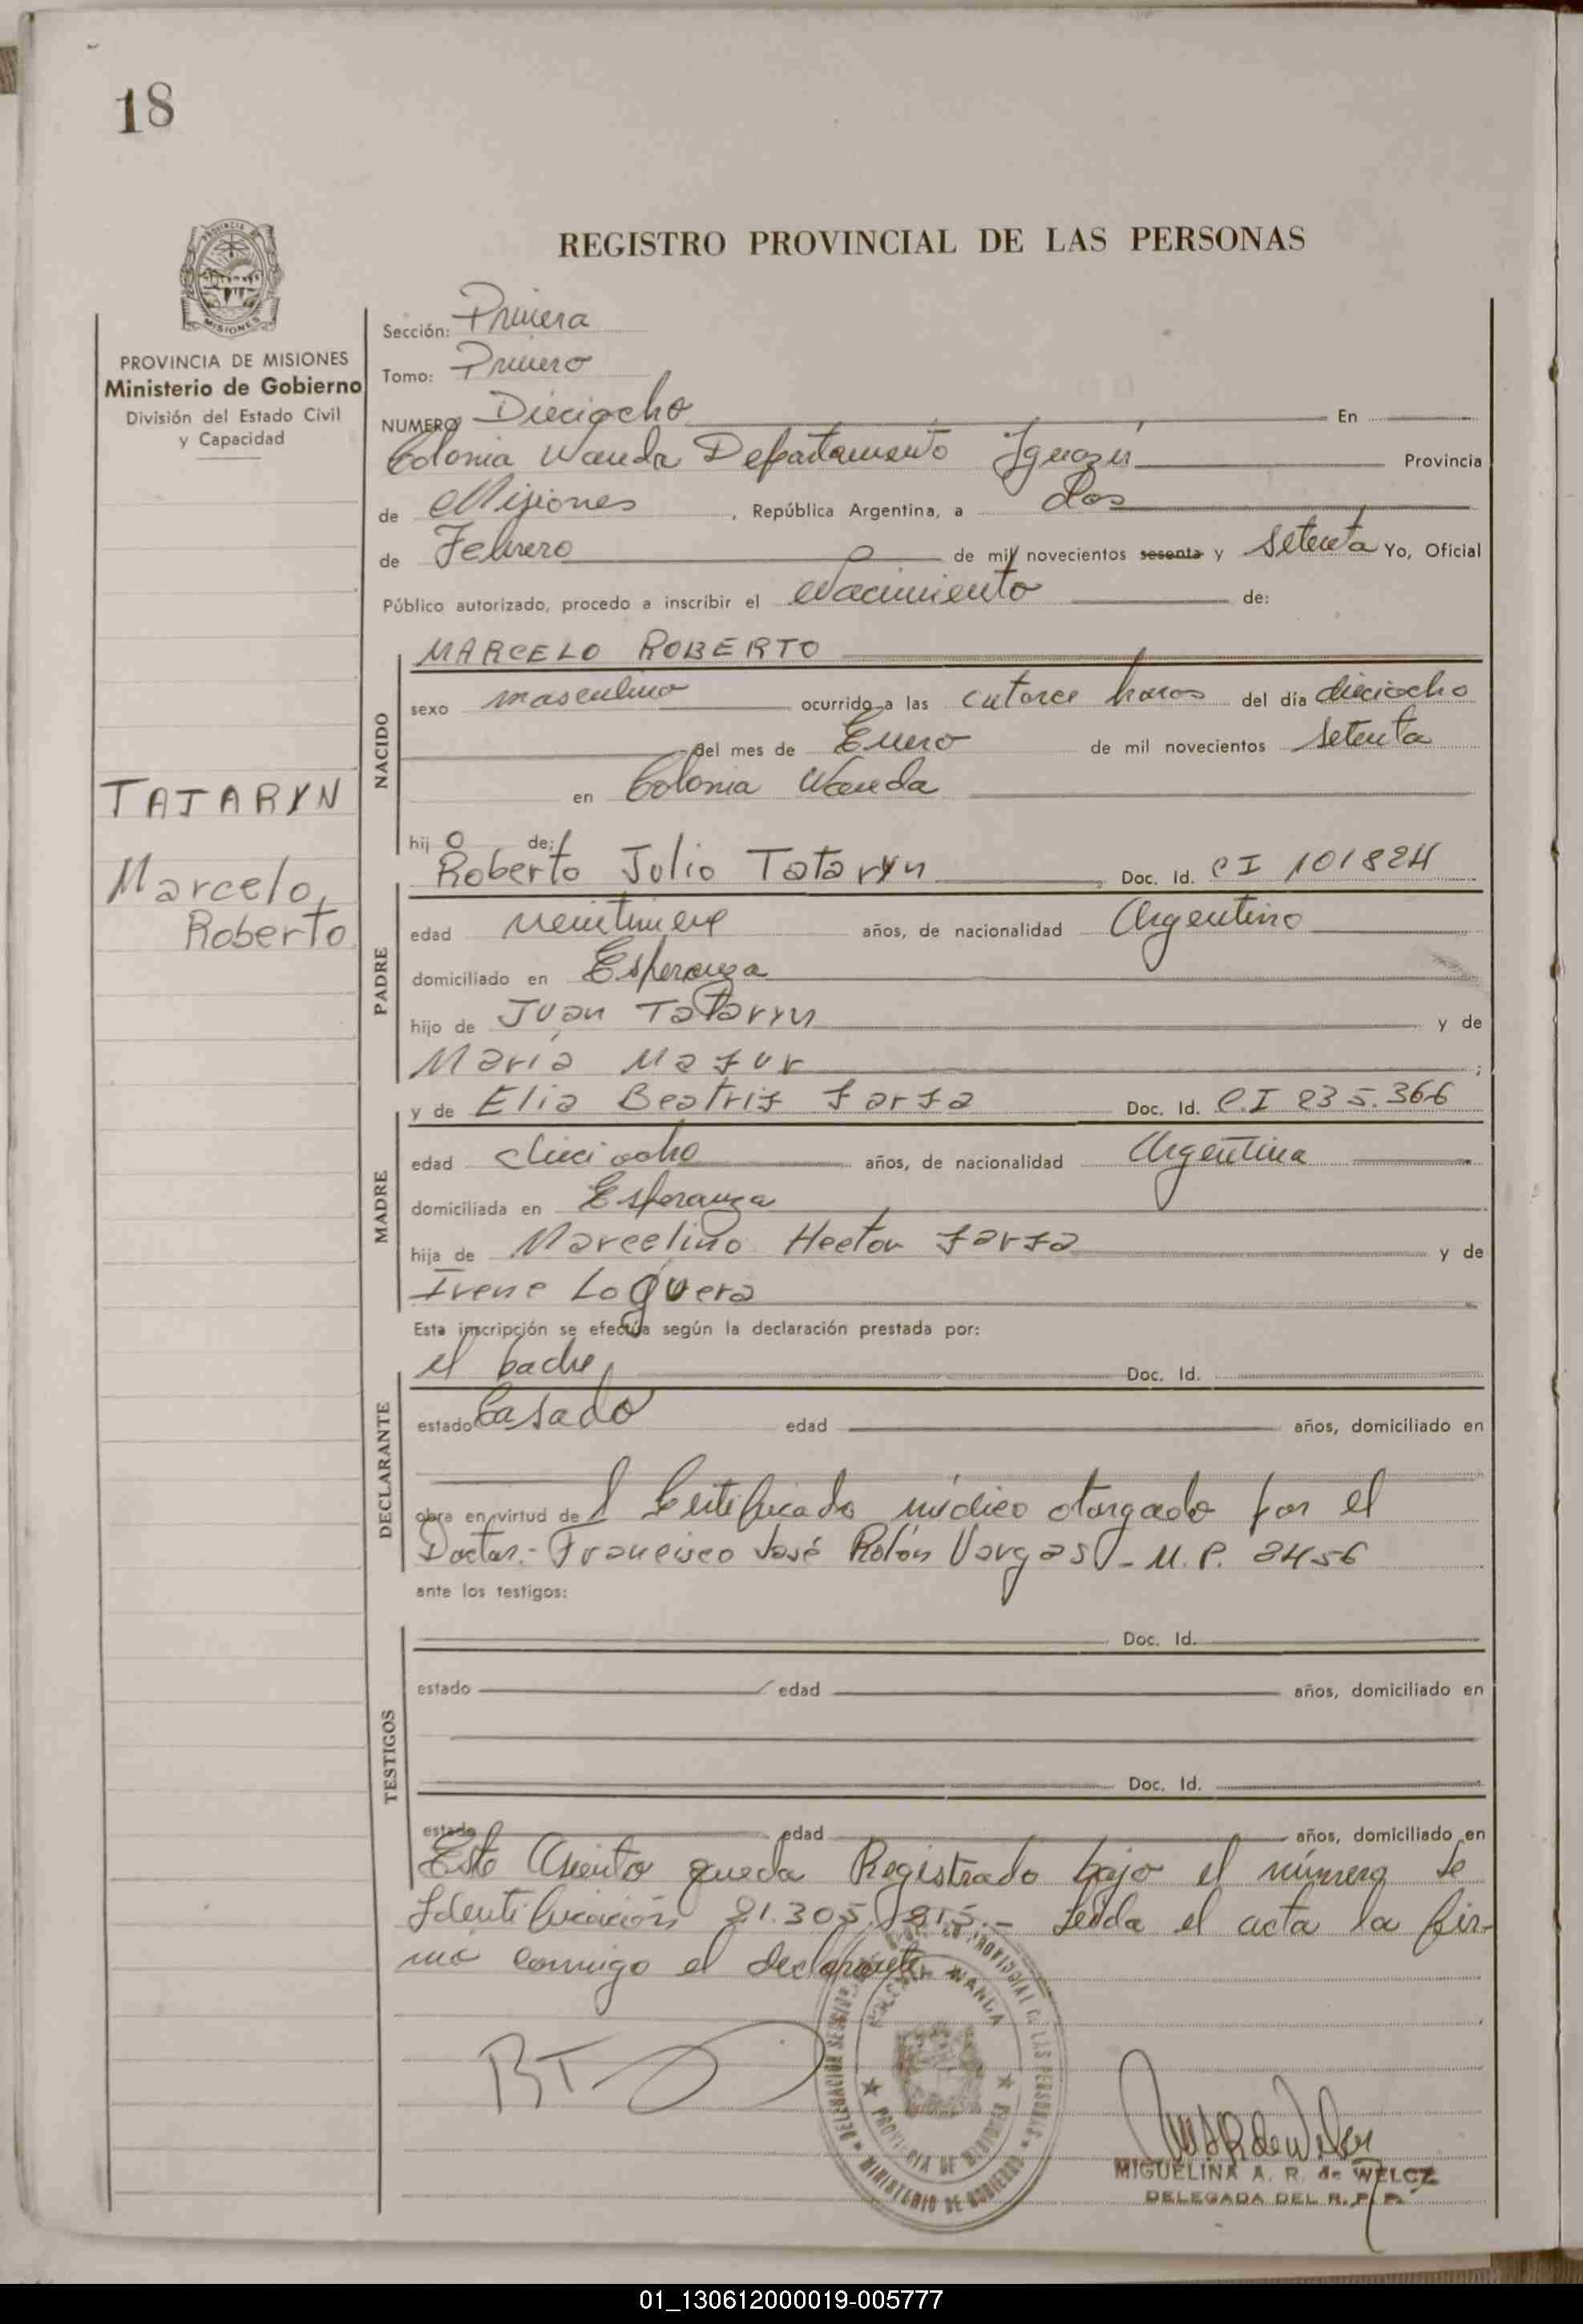 18
PROVINCIA DE MISIONES
Ministerio de Gobierno
División del Estado Civil
y Capacidad
TATARYN
Marcelo,
Roberto
REGISTRO PROVINCIAL DE LAS PERSONAS
Sección: Primera
Tomo: Primero
NUMERO Dieciocho En
Colonia Wanda Departamento Iguazú Provincia
de Misiones, República Argentina, a dos
de Febrero de mil novecientos sesenta y setenta Yo, Oficial
Público autorizado, procedo a inscribir el Nacimiento de:
MARCELO ROBERTO
NACIDO
sexo masculino ocurrido a las catorce horas del día dieciocho
del mes de Enero de mil novecientos setenta
en Colonia Wanda
hijo de:
Roberto Julio Tataryn, Doc. Id. CI 101824
PADRE
edad veintinueve años, de nacionalidad Argentino
domiciliado en Esperanza
hijo de Juan Tataryn y de
María Mazur;
y de Elia Beatriz Zarza Doc. Id. C.I 235.366
MADRE
edad dieciocho años, de nacionalidad Argentina
domiciliada en Esperanza
hija de Marcelino Hector Zarza y de
Irene Loguera
Esta inscripción se efectúa según la declaración prestada por:
el padre Doc. Id.
DECLARANTE
estado Casado edad años, domiciliado en
obra en virtud del Certificado médico otorgado por el
Doctor.- Francisco José Rolón Vargas - M.P. 2456
ante los testigos:
TESTIGOS
Doc. Id.
estado edad años, domiciliado en
Doc. Id.
estado edad años, domiciliado en
Este Asiento queda Registrado bajo el número de
Identificación 21.305.815.- Leida el acta la fir-
ma conmigo el declarante
RT
MINISTERIO DE GOBIERNO
MIGUELINA A. R. de WELCZ
DELEGADA DEL R. P. P.
01_130612000019-005777